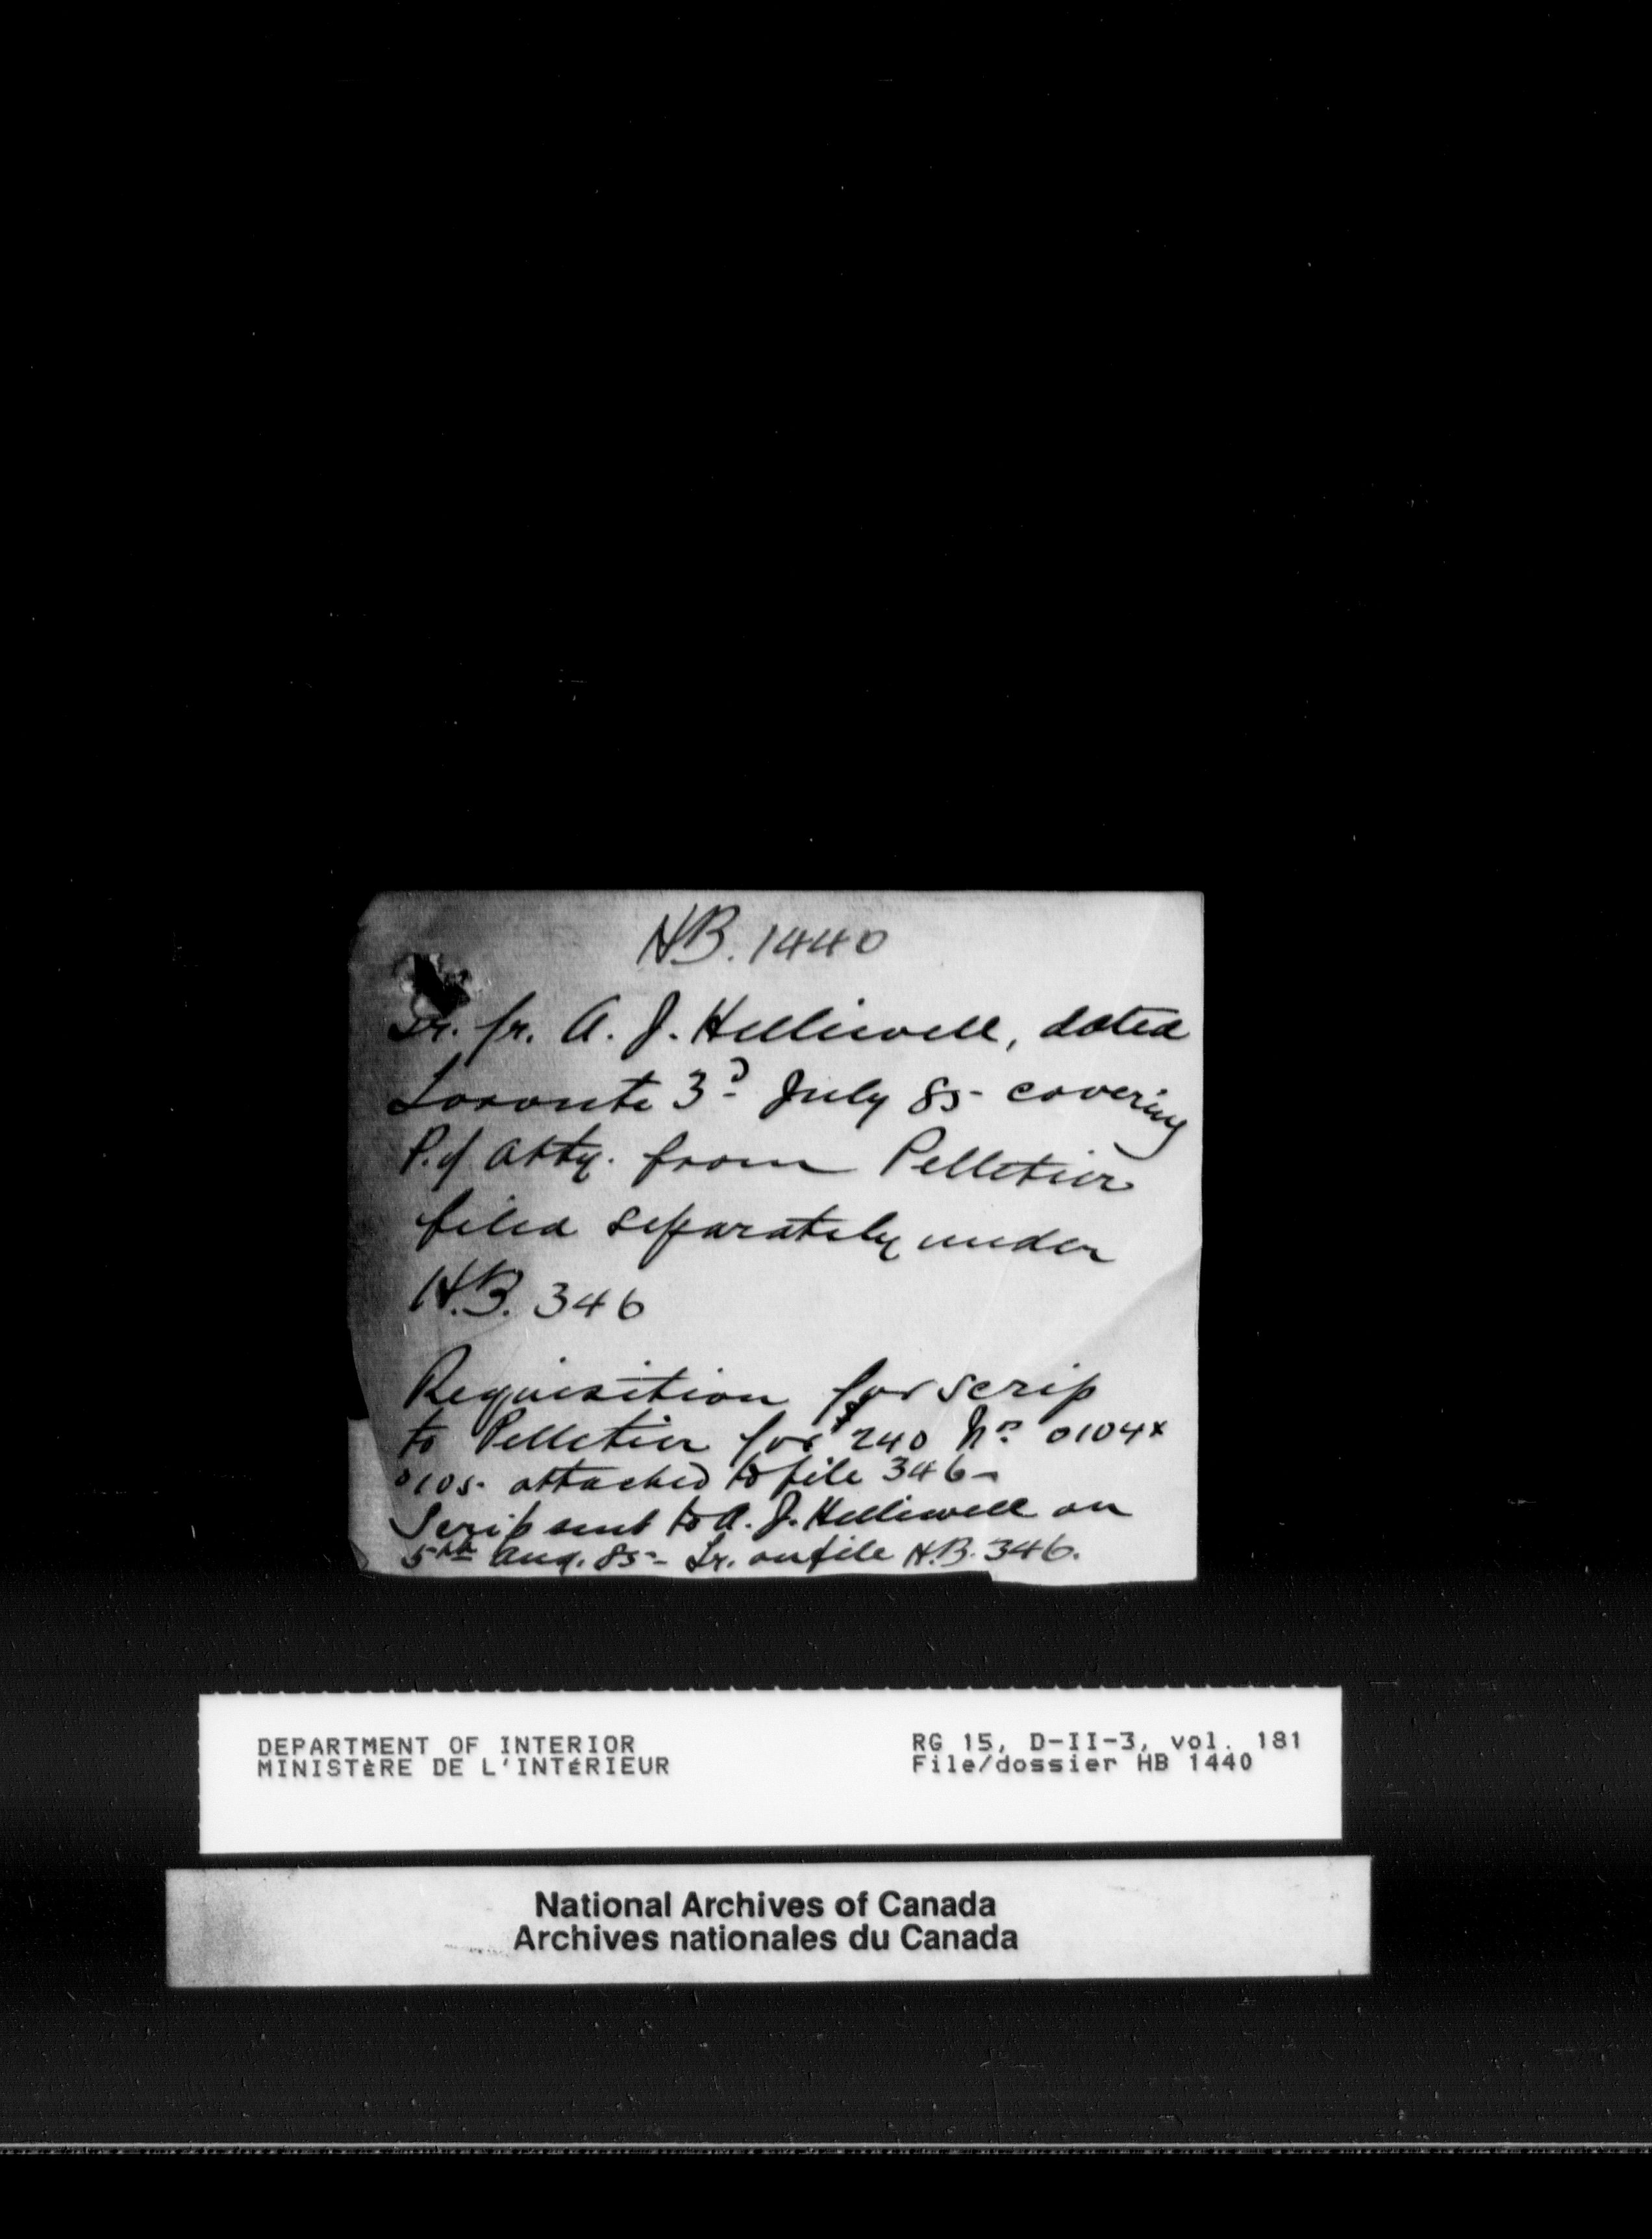 HB. 1440
Lr. fr. A. J. Helliwell, dated
Toronto 3d July 85 - covering
P. of Atty. from Pelletier
filed separately under
H.B. 346
Requisition for scrip
to Pelletier for $240 No 0104 x
0105 - attached to file 346 -
Scrip sent to A. J. Helliwell on
5th Aug. 85 - Lr. on file H.B. 346.
DEPARTMENT OF INTERIOR
MINISTÈRE DE L'INTÉRIEUR
RG 15, D-II-3, vol. 181
File/dossier HB 1440
National Archives of Canada
Archives nationales du Canada